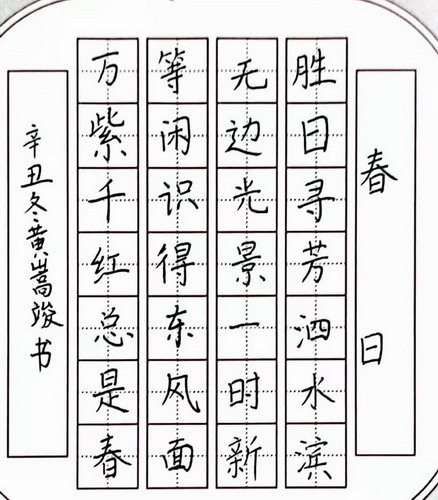 春日
胜日寻芳泗水滨
无边光景一时新
等闲识得东风面
万紫千红总是春
辛丑冬黄嵩竣书